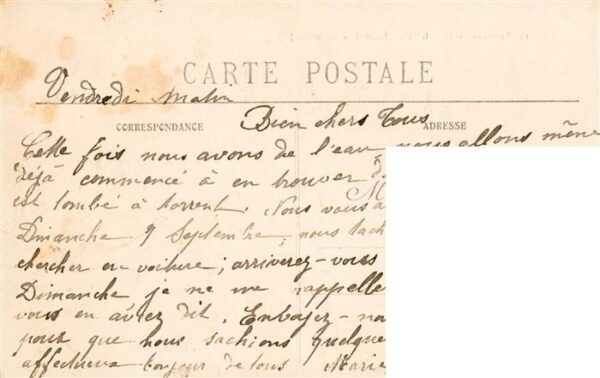 CARTE POSTALE
Vendredi matin
CORRESPONDANCE
ADRESSE
Bien chers Tous
Cette fois nous avons de l'eau nous allons même
déjà commencé à en trouver
est tombé à torrent. Nous vous a
M
Dimanche 9 Septembre, nous tach
chercher en voiture ; arriverez-vous
Dimanche je ne me rappelle
vous en avrez dit. Envoyez-no
pour que nous sachions quelque
affectueux bonjour de tous Marie